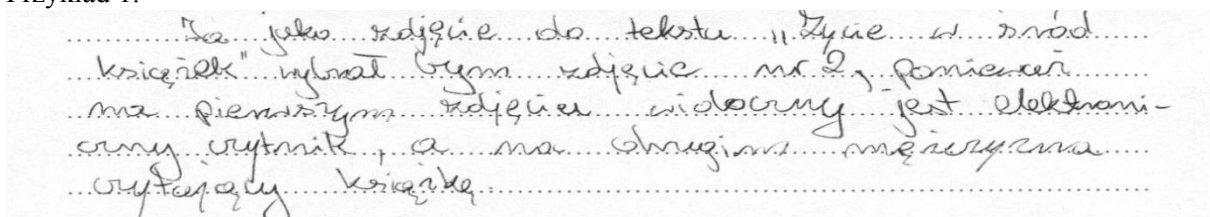 Przykład 1.
Ja jako zdjęcie do tekstu „Życie w śród
książek" wybrał bym zdjęcie nr 2, ponieważ
na pierwszym zdjęciu widoczny jest elektroni-
czny czytnik, a na drugim mężczyzna
czytający książkę